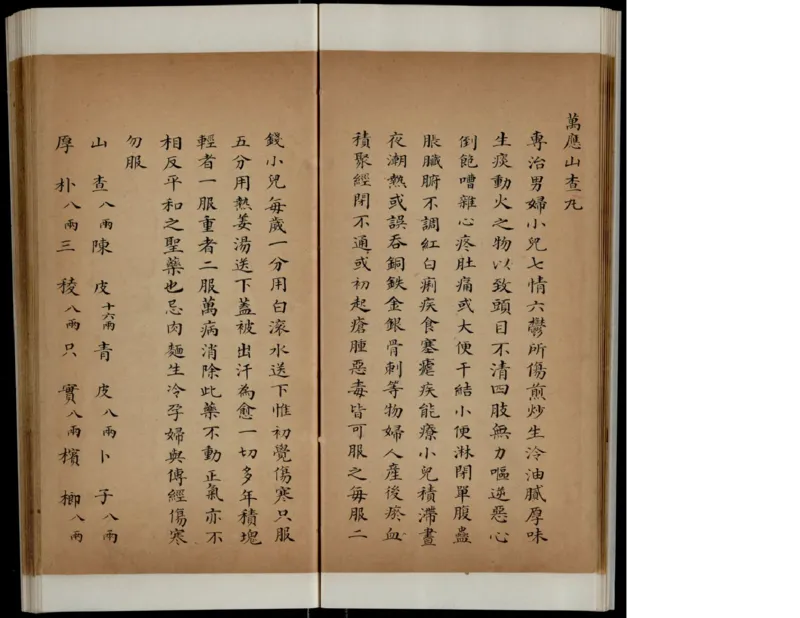 萬應山查丸
專治男婦小兒七情六鬱所傷煎炒生冷油膩厚味
生痰動火之物以致頭目不清四肢無力嘔逆惡心
倒飽嘈雜心疼肚痛或大便干結小便淋閉單腹蠱
脹臟腑不調紅白痢疾食塞瘧疾能療小兒積滯晝
夜潮熱或誤吞銅鉄金銀骨刺等物婦人產後瘀血
積聚經閉不通或初起瘡腫惡毒皆可服之每服二
錢小兒每歲一分用白滚水送下惟初覺傷寒只服
五分用熱姜湯送下蓋被出汗為愈一切多年積塊
輕者一服重者二服萬病消除此藥不動正氣亦不
相反平和之聖藥也忌肉麵生冷孕婦與傳經傷寒
勿服
山查八兩陳皮十六兩青皮八兩卜子八兩
厚朴八兩三稜八兩只實八兩檳榔八兩